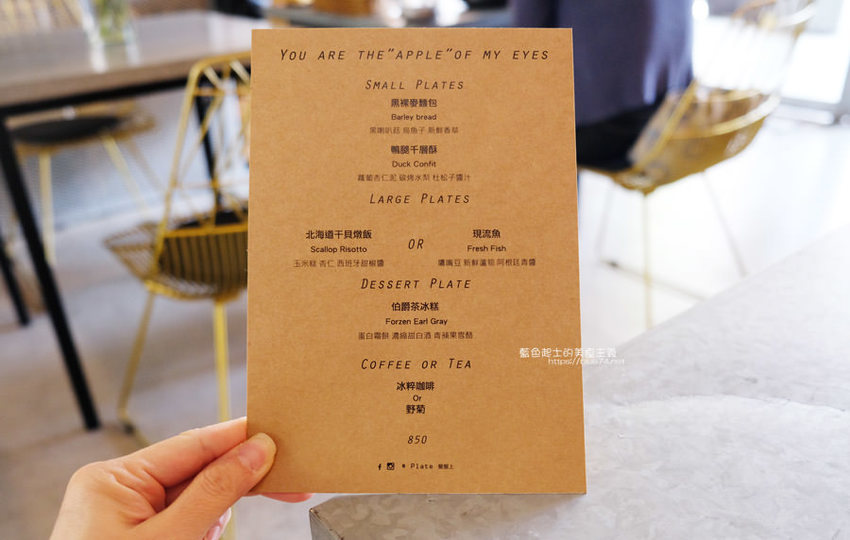 YOU ARE THE"APPLE"OF MY EYES
SMALL PLATES
黑裸麥麵包
Barley bread
黑喇叭菇 烏魚子 新鮮香草
鴨腿千層酥
Duck Confit
蘿蔔杏仁泥 碳烤水梨 杜松子醬汁
LARGE PLATES
北海道干貝燉飯
Scallop Risotto
玉米糕 杏仁 西班牙甜椒醬
OR
現流魚
Fresh Fish
鷹嘴豆 新鮮蘆筍 阿根廷青醬
DESSERT PLATE
伯爵茶冰糕
Forzen Earl Gray
蛋白霜餅 濃縮甜白酒 青蘋果雪酪
COFFEE OR TEA
冰粹咖啡
Or
野菊
850
Plate 餐盤上
藍色起士的美食主義